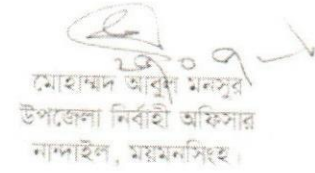 মোহাম্মদ আবুল মনসুর
উপজেলা নির্বাহী অফিসার
নান্দাইল, ময়মনসিংহ।